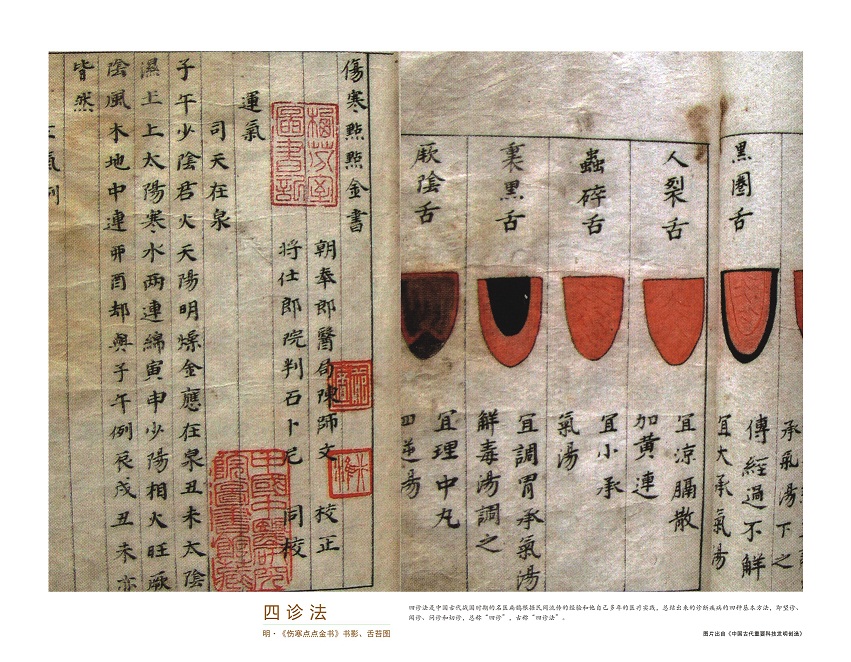 傷寒點點金書
朝奉郎醫局陳師文 校正
将仕郎院判石卜尼 同校
運氣
司天在泉
子午少陰君火天陽明燥金應在泉丑未太陰
濕土上太陽寒水兩連綿寅申少陽相火旺厥
陰風木地中連卯酉却與子午例辰戌丑未亦
皆然
黑圈舌
承氣湯下之
傳經過不解
宜大承氣湯
人裂舌
宜涼膈散
加黄連
蟲碎舌
宜小承
氣湯
裏黑舌
宜調胃承氣湯
解毒湯調之
厥陰舌
宜理中丸
四逆湯
四诊法
明·《伤寒点点金书》书影、舌苔图
四诊法是中国古代战国时期的名医扁鹊根据民间流传的经验和他自己多年的医疗实践，总结出来的诊断疾病的四种基本方法，即望诊、
闻诊、问诊和切诊，总称“四诊”，古称“四诊法”。
图片出自《中国古代重要科技发明创造》